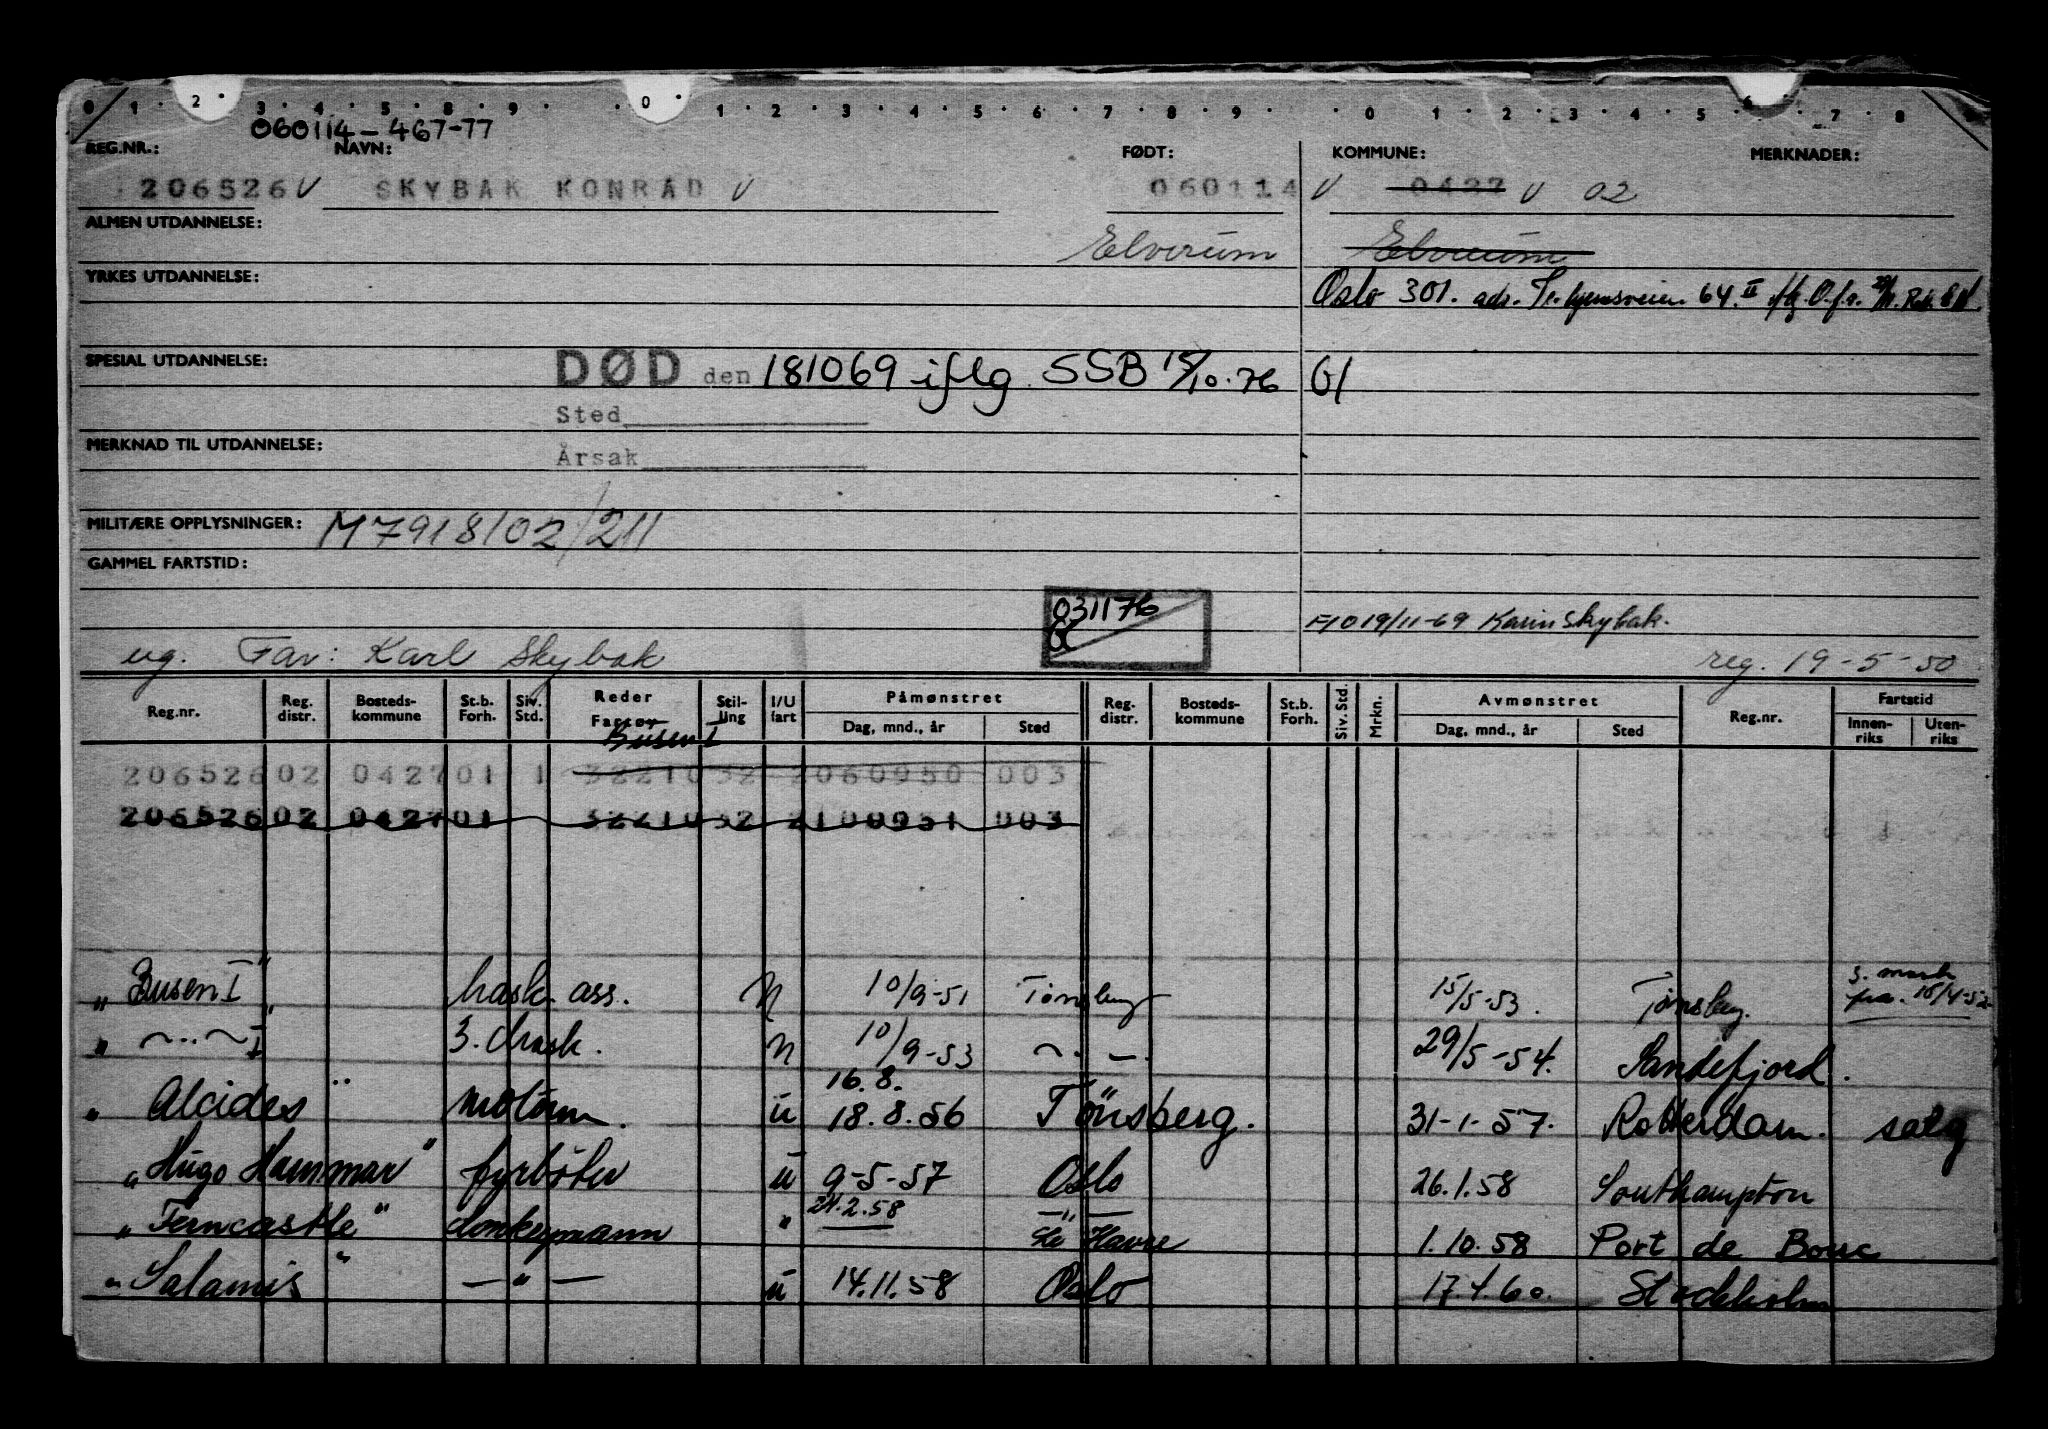 0 1 2 3 4 5 8 9 0 1 2 3 4 5 6 7 8 9 0 1 2 3 4 5 6 7 8 9
060114-467-77
REG.NR.: NAVN: FØDT: KOMMUNE: MERKNADER:
206526 V SKYBAK KONRAD V 060114 V 0427 V 02
ALMEN UTDANNELSE: Elverum Elverum
YRKES UTDANNELSE:
Oslo 301. adr. 64. II
SPESIAL UTDANNELSE: DØD den 181069 iflg. SSB 15/10.76
Sted
MERKNAD TIL UTDANNELSE:
Årsak
MILITÆRE OPPLYSNINGER: M7918/02/211
GAMMEL FARTSTID:
031176
19/11-69 Karin Skybak.
ug. Far: Karl Skybak reg. 19-5-50
Reg.nr. Reg. distr. Bosteds-kommune St.b. Forh. Siv. Std. Reder Fartøy Stil-ling I/U fart Påmønstret Dag, mnd., år Sted Reg. distr. Bosteds-kommune St.b. Forh. Siv. Std. Mrkn. Avmønstret Dag, mnd., år Sted Reg.nr. Fartstid Innen-riks Uten-riks
Busen I
206526 02 0427 01 1 3221032 2060950 003
206526 02 0427 01 3221032 2100951 003
„Busen I" mask. ass. N 10/9-51 Tønsberg 15/5-53. Tønsberg. 3. mask fra. 15/4-52
„ ~..~ I" 3. mask. N 10/9-53 ~.-. 29/5-54. Sandefjord.
16.8.
„Alcides" motorm. u 18.8.56 Tönsberg. 31-1-57. Rotterdam. salg
„Hugo Hammar" fyrböter u 9-5-57 Oslo 26.1.58 Southampton
„Ferncastle" donkeymann " 21.2.58 Le Havre 1.10.58 Port de Bouc
„Salamis" —"— u 14.11.58 Oslo 17.4.60. Stockholm